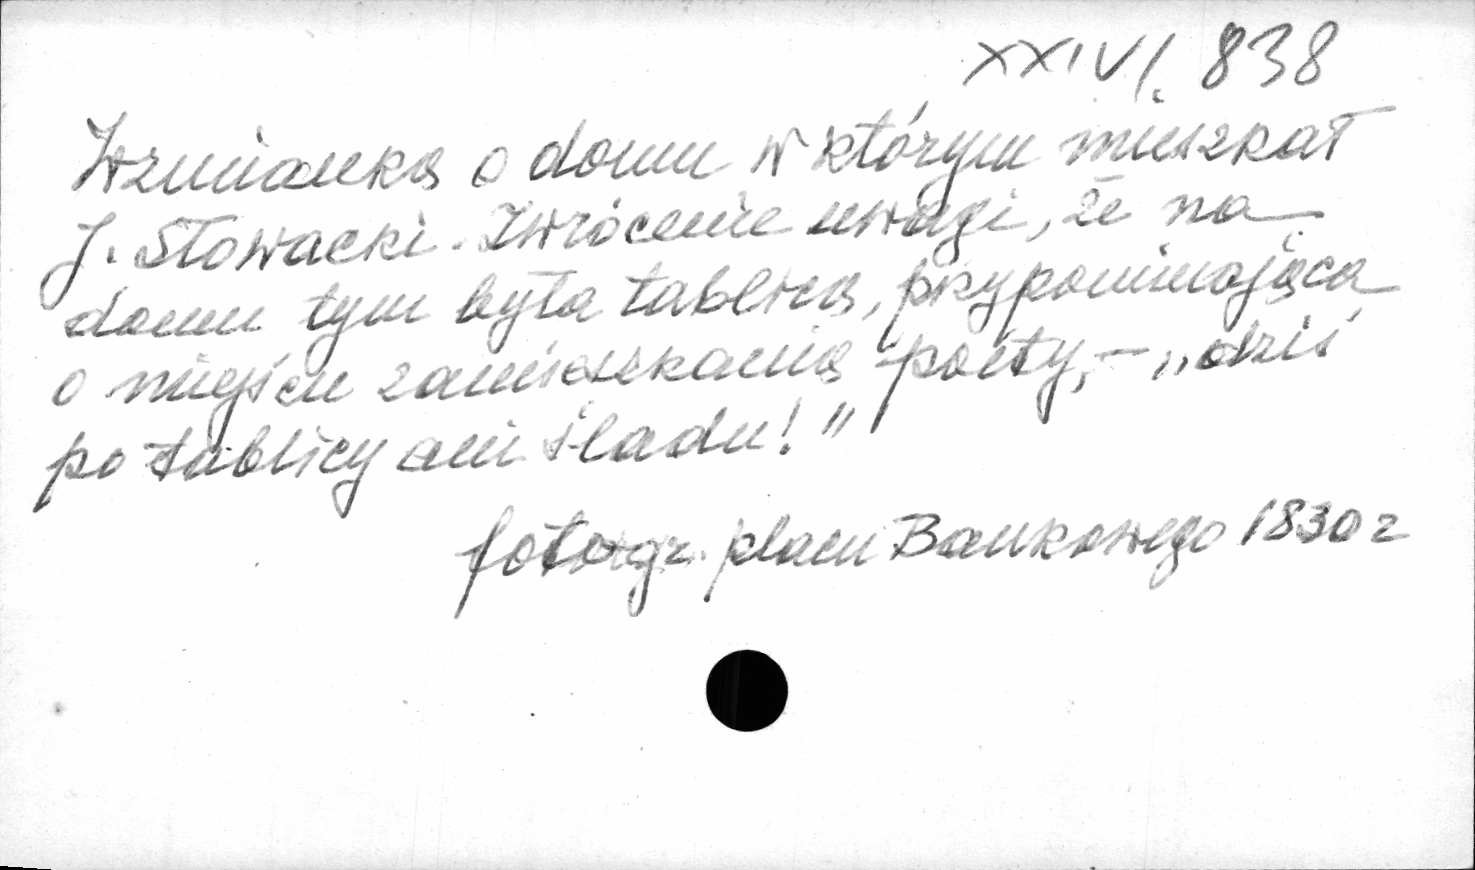 XXIV/. 838
Wzmianka o domu w którym mieszkał
J. Słowacki. Zwrócenie uwagi, że na
domu tym była tablica, przypominająca
o miejscu zamieszkania poety, – „dziś
po tablicy ani śladu!"
fotogr. placu Bankowego 1830 r